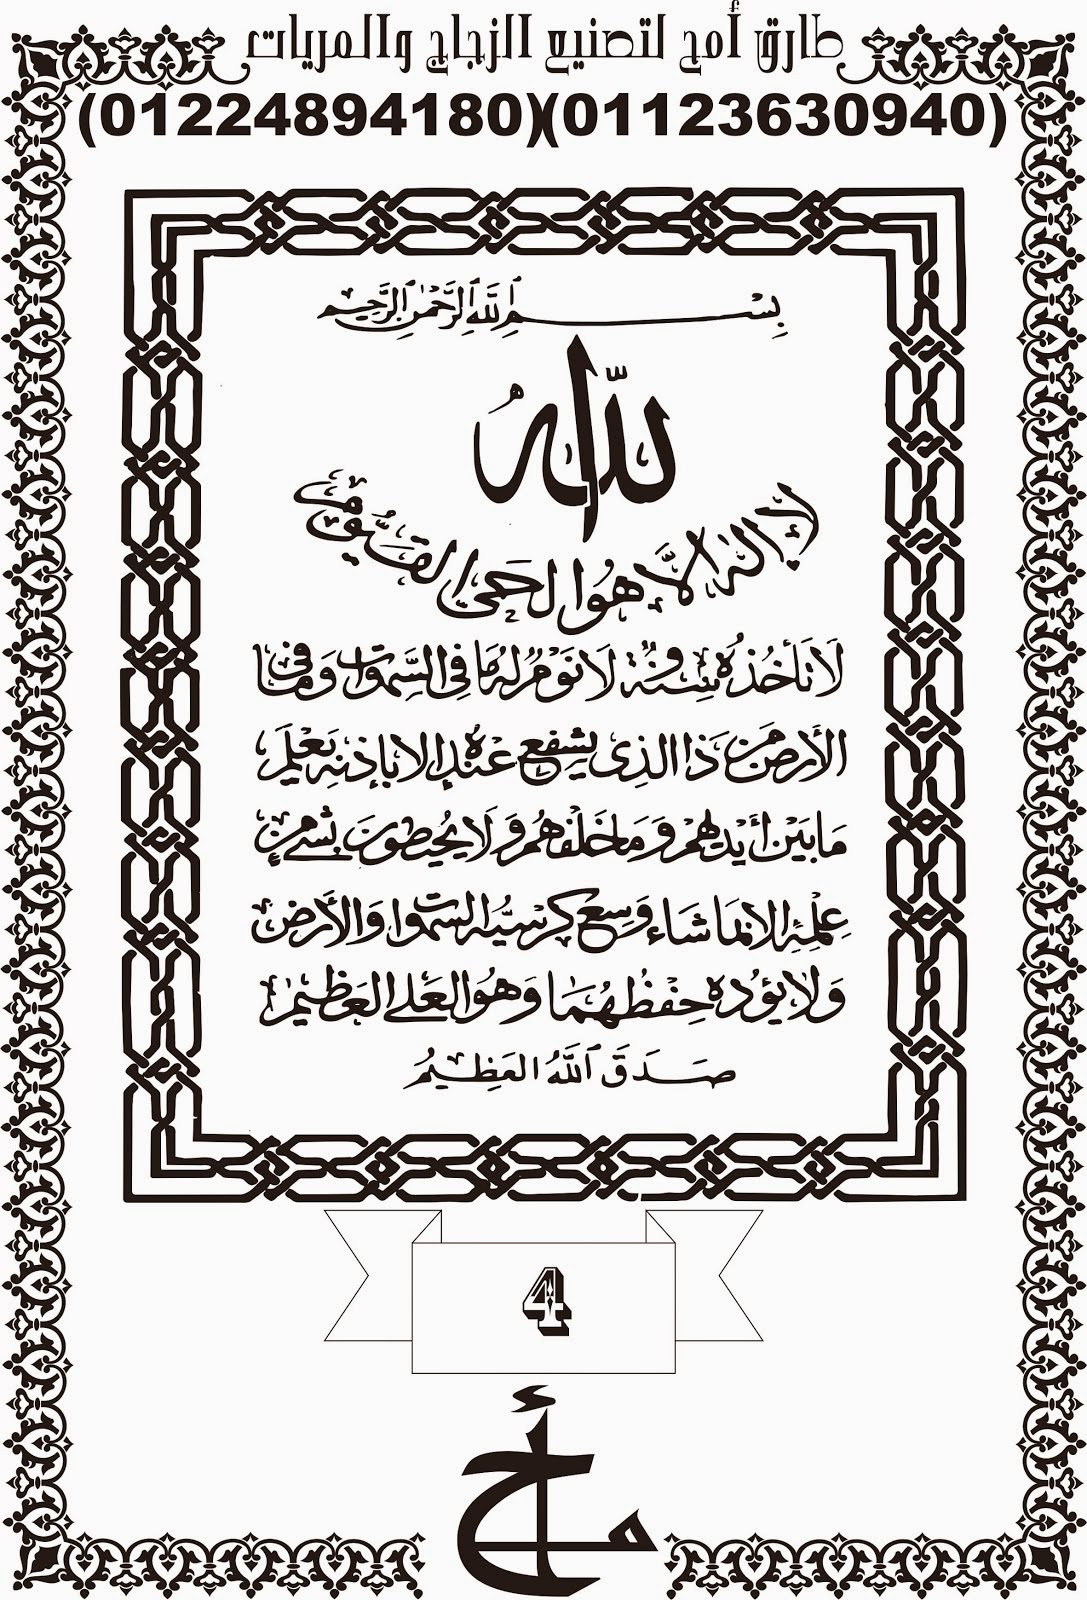 طارق أمح لتصنيع الزجاج والمريات
(01224894180)(01123630940)
بِسْمِ ٱللَّهِ ٱلرَّحْمٰنِ ٱلرَّحِيمِ
اللهُ
لا إله إلَّا هُوا لحي القيُّومُ
لَا تَأخُذُهُ سِنةٌ وَلَا نَوْمٌ لَهُ مَا فِي السَّموات وَمَا في
الأرض من ذَا الذِى يشفع عندهُ إلا بإذنِهِ يَعْلَم
مَا بَيْن أيْديهم وَمَا خَلْفَهُم وَلَا يُحيطون بشئٍ مِن
عِلْمِهِ إلا بمَا شَاء وَسِعَ كُرْسِيُّه السموات وَالأرض
وَلَا يَؤُدهُ حِفْظُهُمَا وَهُوَ العَلي العَظيم
صَدَقَ ٱللَّهُ العَظِيمُ
4
أمح